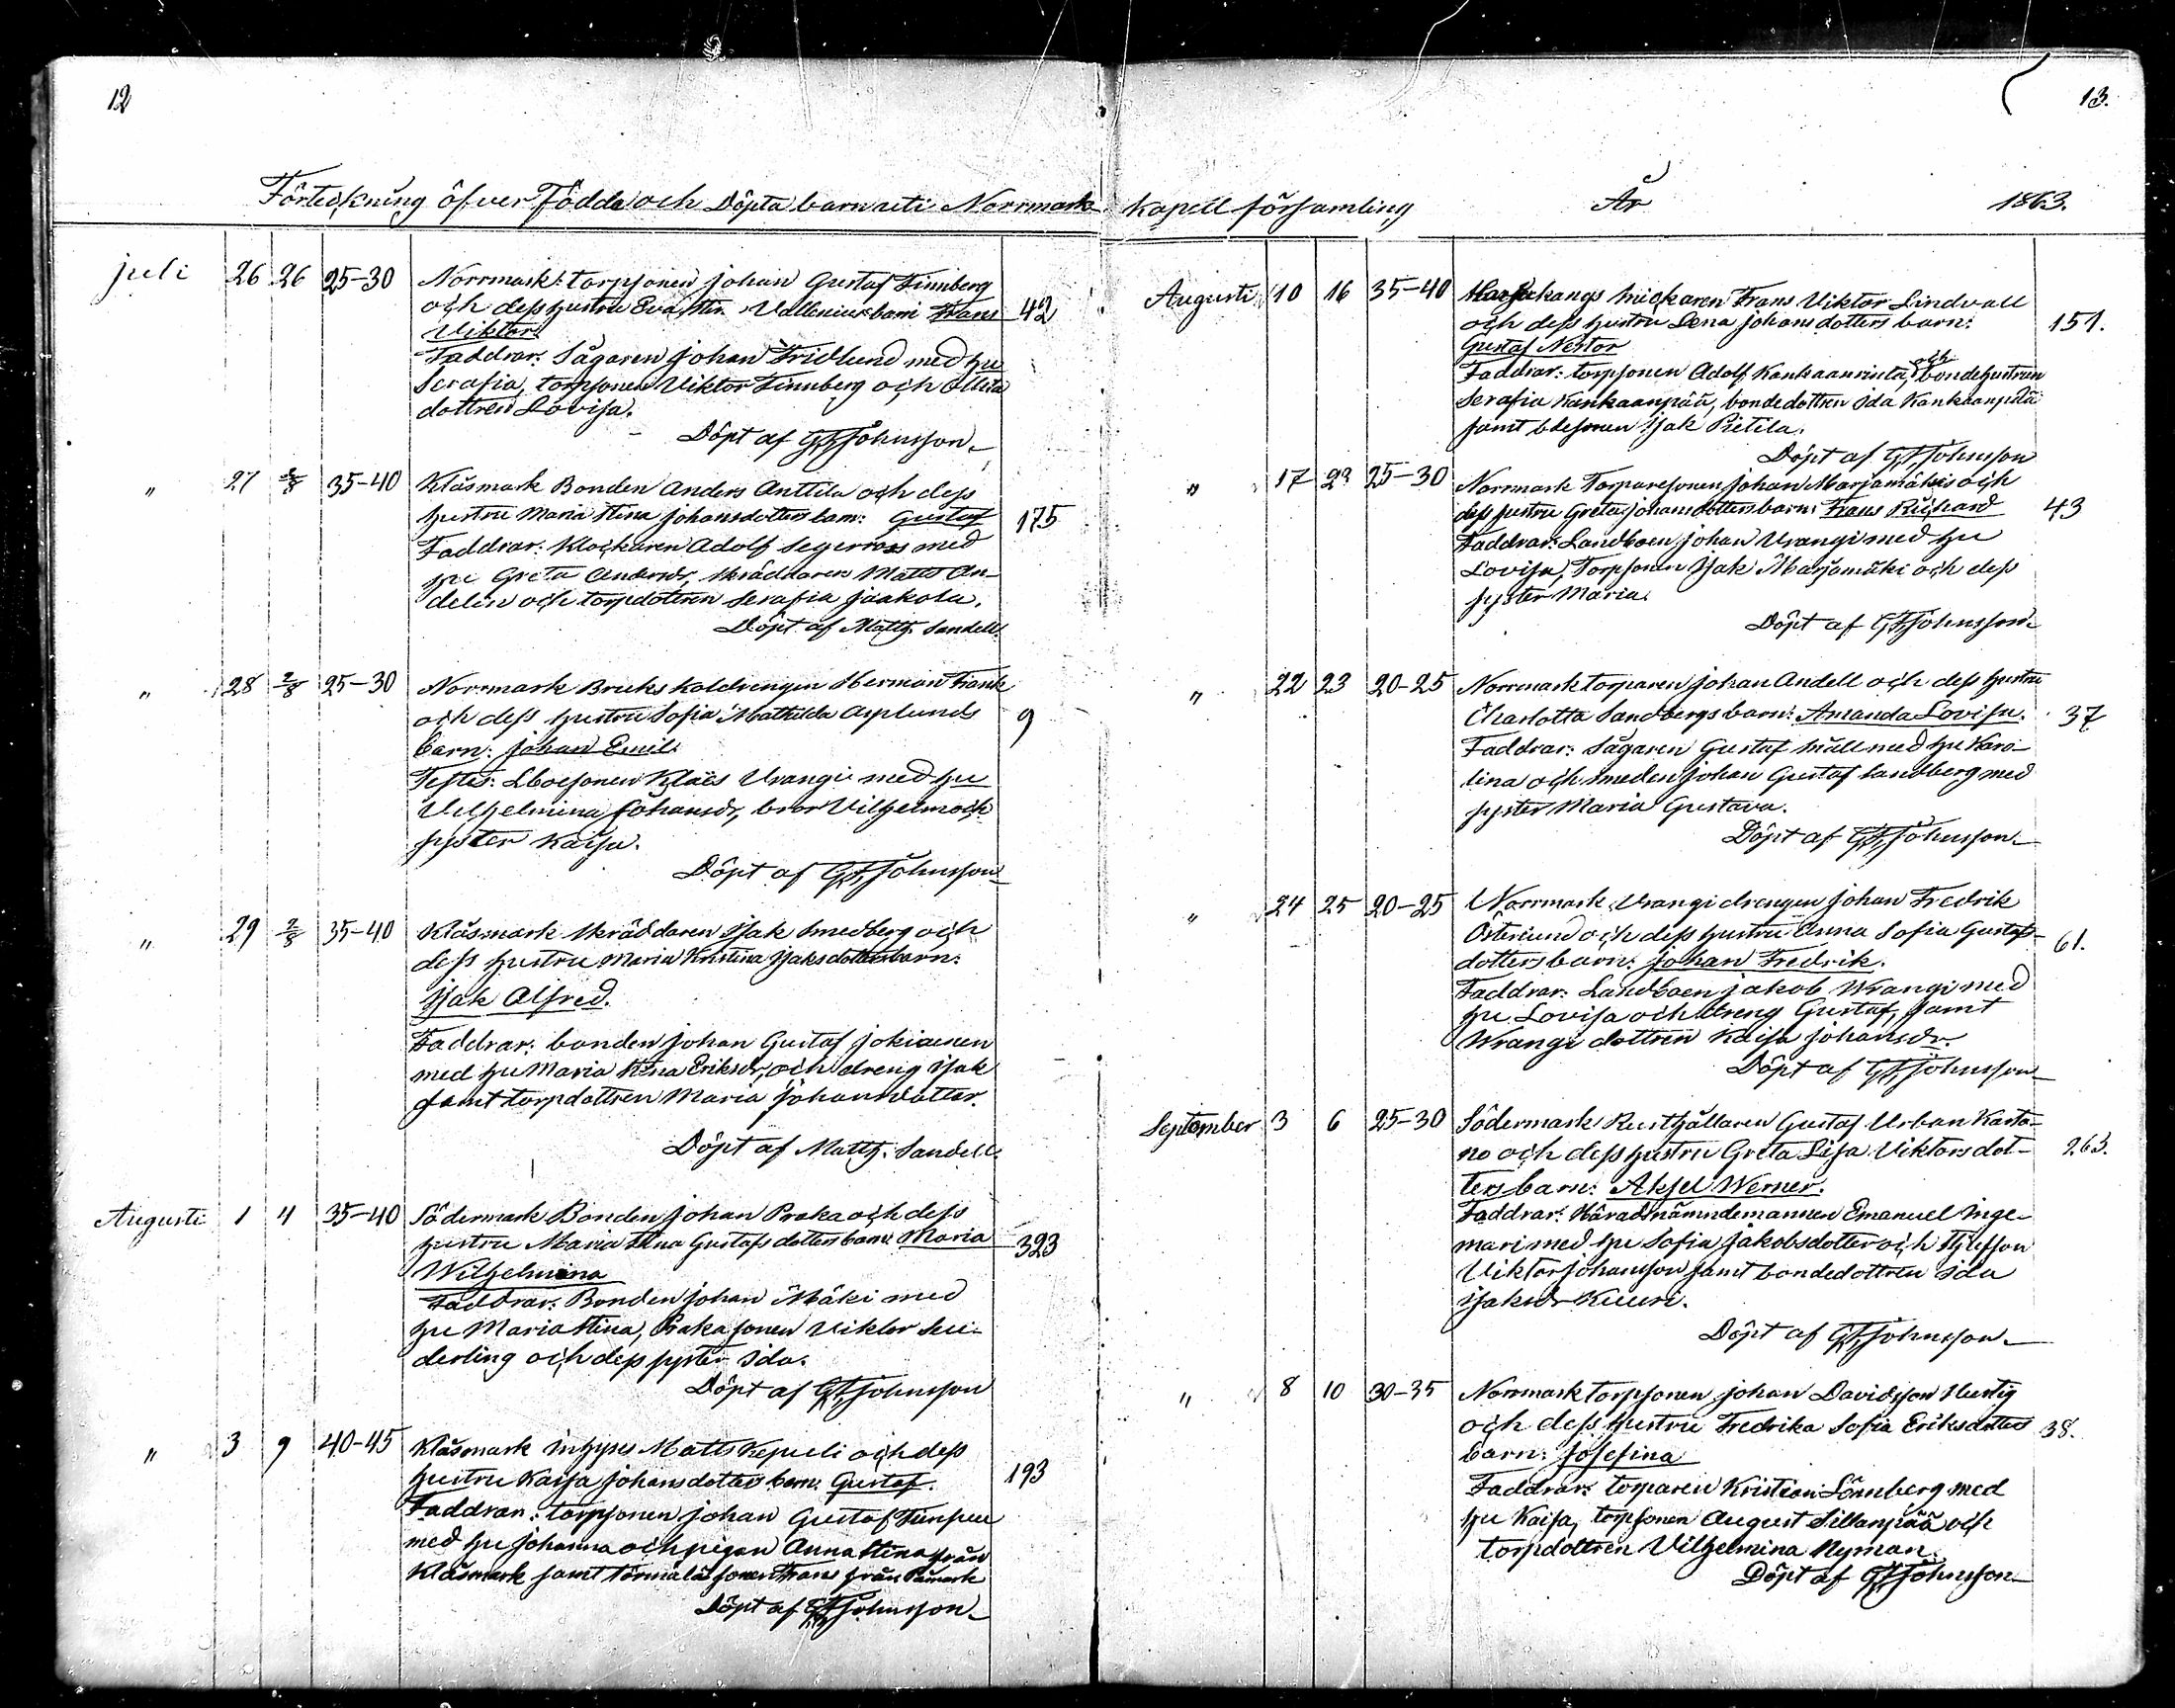 12
Förteckning öfver Födda och Döpta barn uti Norrmark
juli 26 26 25-30 Norrmark: torpsonen johan Gustaf Finnberg
och dess hustru Eva Stin. Vallenius barn Frans 42
Viktor
Faddrar: Sågaren johan Fridlund med hu
Serafia, torpsonen Viktor Finnberg och Ollila
dottren Lovisa.
Döpt af G F Johnsson
" 27 2/8 35-40 Klåsmark Bonden Anders Anttila och dess
hustru Maria Stina johansdotters barn: Gustaf 175
Faddrar: Klockaren Adolf Segerroos med
hu Greta Andersdr, skräddaren Matts An-
delin och torpdottren Serafia jaakola.
Döpt af Matth. Sandell.
" 28 2/8 25-30 Norrmark Bruks koldrengen Herman Frank
och dess hustru Sofia Mathilda Asplunds 9
barn: johan Emil
Testes: Lboesonen Klaës Vrangi med hu
Vilhelmina Johansdr, bror Vilhelm och
syster Kaisa.
Döpt af G F Johnsson
" 29 2/8 35-40 Klåsmark Skräddaren Isak Smedberg och
dess hustru Maria Kristina Isaksdotters barn:
Isak Alfred.
Faddrar: bonden johan Gustaf jokiainen
med hu Maria Stina Eriksdr, och dreng Isak
samt torpdottren Maria johansdotter.
Döpt af Matth. Sandell.
Augusti 1 4 35-40 Södermark Bonden johan Praka och dess
hustru Maria Stina Gustafsdotters barn Maria 323
Wilhelmina
Faddrar: Bonden johan Mäki med
hu Maria Stina, Prakasonen Viktor Seu-
derling och dess syster Ida.
Döpt af G F Johnsson
" 3 9 40-45 Klåsmark inhyses Matts Kepuli och dess
hustru Kaisa johansdotters barn: Gustaf. 193
Faddrar: torpsonen johan Gustaf
med hu johanna och pigan Anna Stina från
Klåsmark samt sonen Frans från Påmark
Döpt af G F Johnsson
13.
kapell församling År 1863.
Augusti 10 16 35-40 Harjakangs snickaren Frans Viktor Lindvall
och dess hustru Lena johansdotters barn: 151.
Gustaf Nestor
Faddrar: torpsonen Adolf Kankaanrinta, och bondehustrun
Serafia Kankaanpää, bondedottren Ida Kankaanpää
samt bdesonen Isak Pietila.
Döpt af G F Johnsson
" 17 23 25-30 Norrmark Torparesonen johan Marjamäkis och
dess hustru Greta johansdotters barn: Frans Richard 43
Faddrar: Landboen johan Vrangi med hu
Lovisa, Torpsonen Isak Marjamäki och dess
syster Maria.
Döpt af G F Johnsson
" 22 23 20-25 Norrmark torparen johan Andell och dess hustru
Charlotta Sandbergs barn: Amanda Lovisa. 37
Faddrar: Sågaren Gustaf Mäll med hu Karo-
lina och smeden johan Gustaf Sandberg med
syster Maria Gustava.
Döpt af G F Johnsson
" 24 25 20-25 Norrmark, Vrangi drengen johan Fredrik
Österlund och dess hustru Anna Sofia Gustafs- 61.
dotters barn: johan Fredrik.
Faddrar: Landboen jakob Wrangi med
hu Lovisa och dreng Gustaf, samt
Wrangi dottren Kaisa johansdr.
Döpt af G F Johnsson
September 3 6 25-30 Södermark Rusthållaren Gustaf Urban Karta-
no och dess hustru Greta Lisa Viktorsdot- 263.
ters barn: Aksel Werner.
Faddrar: Häradsnämndemannen Emanuel Inge-
mari med hu Sofia jakobsdotter och
Viktor johansson samt bondedottren Ida
Isaksdr Kuuri.
Döpt af G F Johnsson
" 8 10 30-35 Norrmark torpsonen johan Davidsson Hurtig
och dess hustru Fredrika Sofia Eriksdotters 38.
barn: Josefina
Faddrar: torparen Kristian Lönnberg med
hu Kaisa, torpsonen August Sillanpää och
torpdottren Vilhelmina Nyman.
Döpt af G F Johnsson